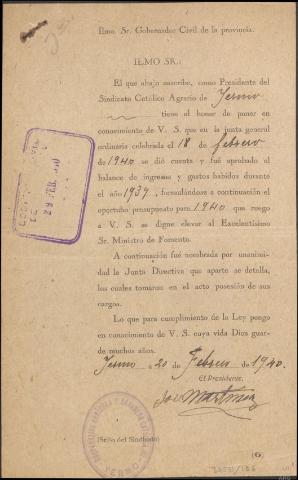 Ilmo. Sr. Gobernador Civil de la provincia.
ILMO SR.:
El que abajo suscribe, como Presidente del
Sindicato Católico Agrario de Yermo
tiene el honor de poner en
conocimiento de V. S. que en la junta general
ordinaria celebrada el 18 de febrero
de 1940 se dió cuenta y fué aprobado el
balance de ingresos y gastos habidos durante
el año 1939, formulándose a continuación el
oportuno presupuesto para 1940 que ruego
a V. S. se digne elevar al Excelentísimo
Sr. Ministro de Fomento.
A continuación fué nombrada por unanimi-
dad la Junta Directiva que aparte se detalla,
los cuales tomaron en el acto posesión de sus
cargos.
Lo que para cumplimiento de la Ley pongo
en conocimiento de V. S. cuya vida Dios guar-
de muchos años.
Yermo a 20 de Febrero de 1940.
El Presidente,
José Martínez
(Sello del Sindicato)
(6)
29 FEB
YERMO